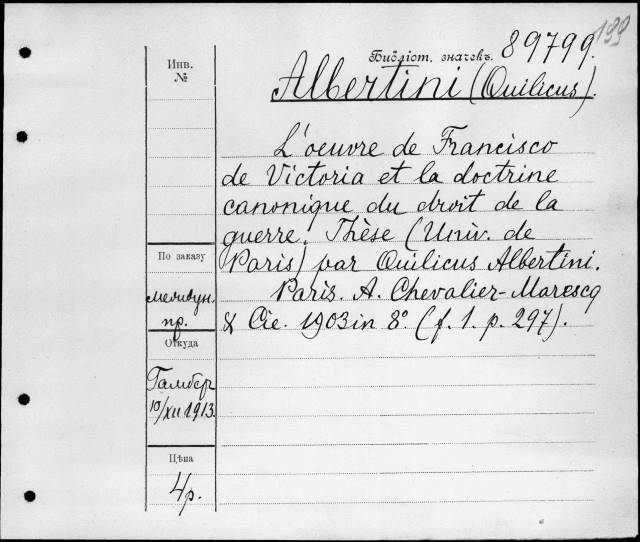 199
Библіот. значекъ. 89799.
Инв.
№
Albertini (Quilicus).
L'oeuvre de Francisco
de Victoria et la doctrine
canonique du droit de la
guerre. Thèse (Univ. de
Paris) par Quilicus Albertini.
Paris. A. Chevalier-Marescq
& Cie. 1903 in 8°. (f. 1. p. 297).
По заказу
пр.
Откуда
10/XII 1913.
Цѣна
4 р.